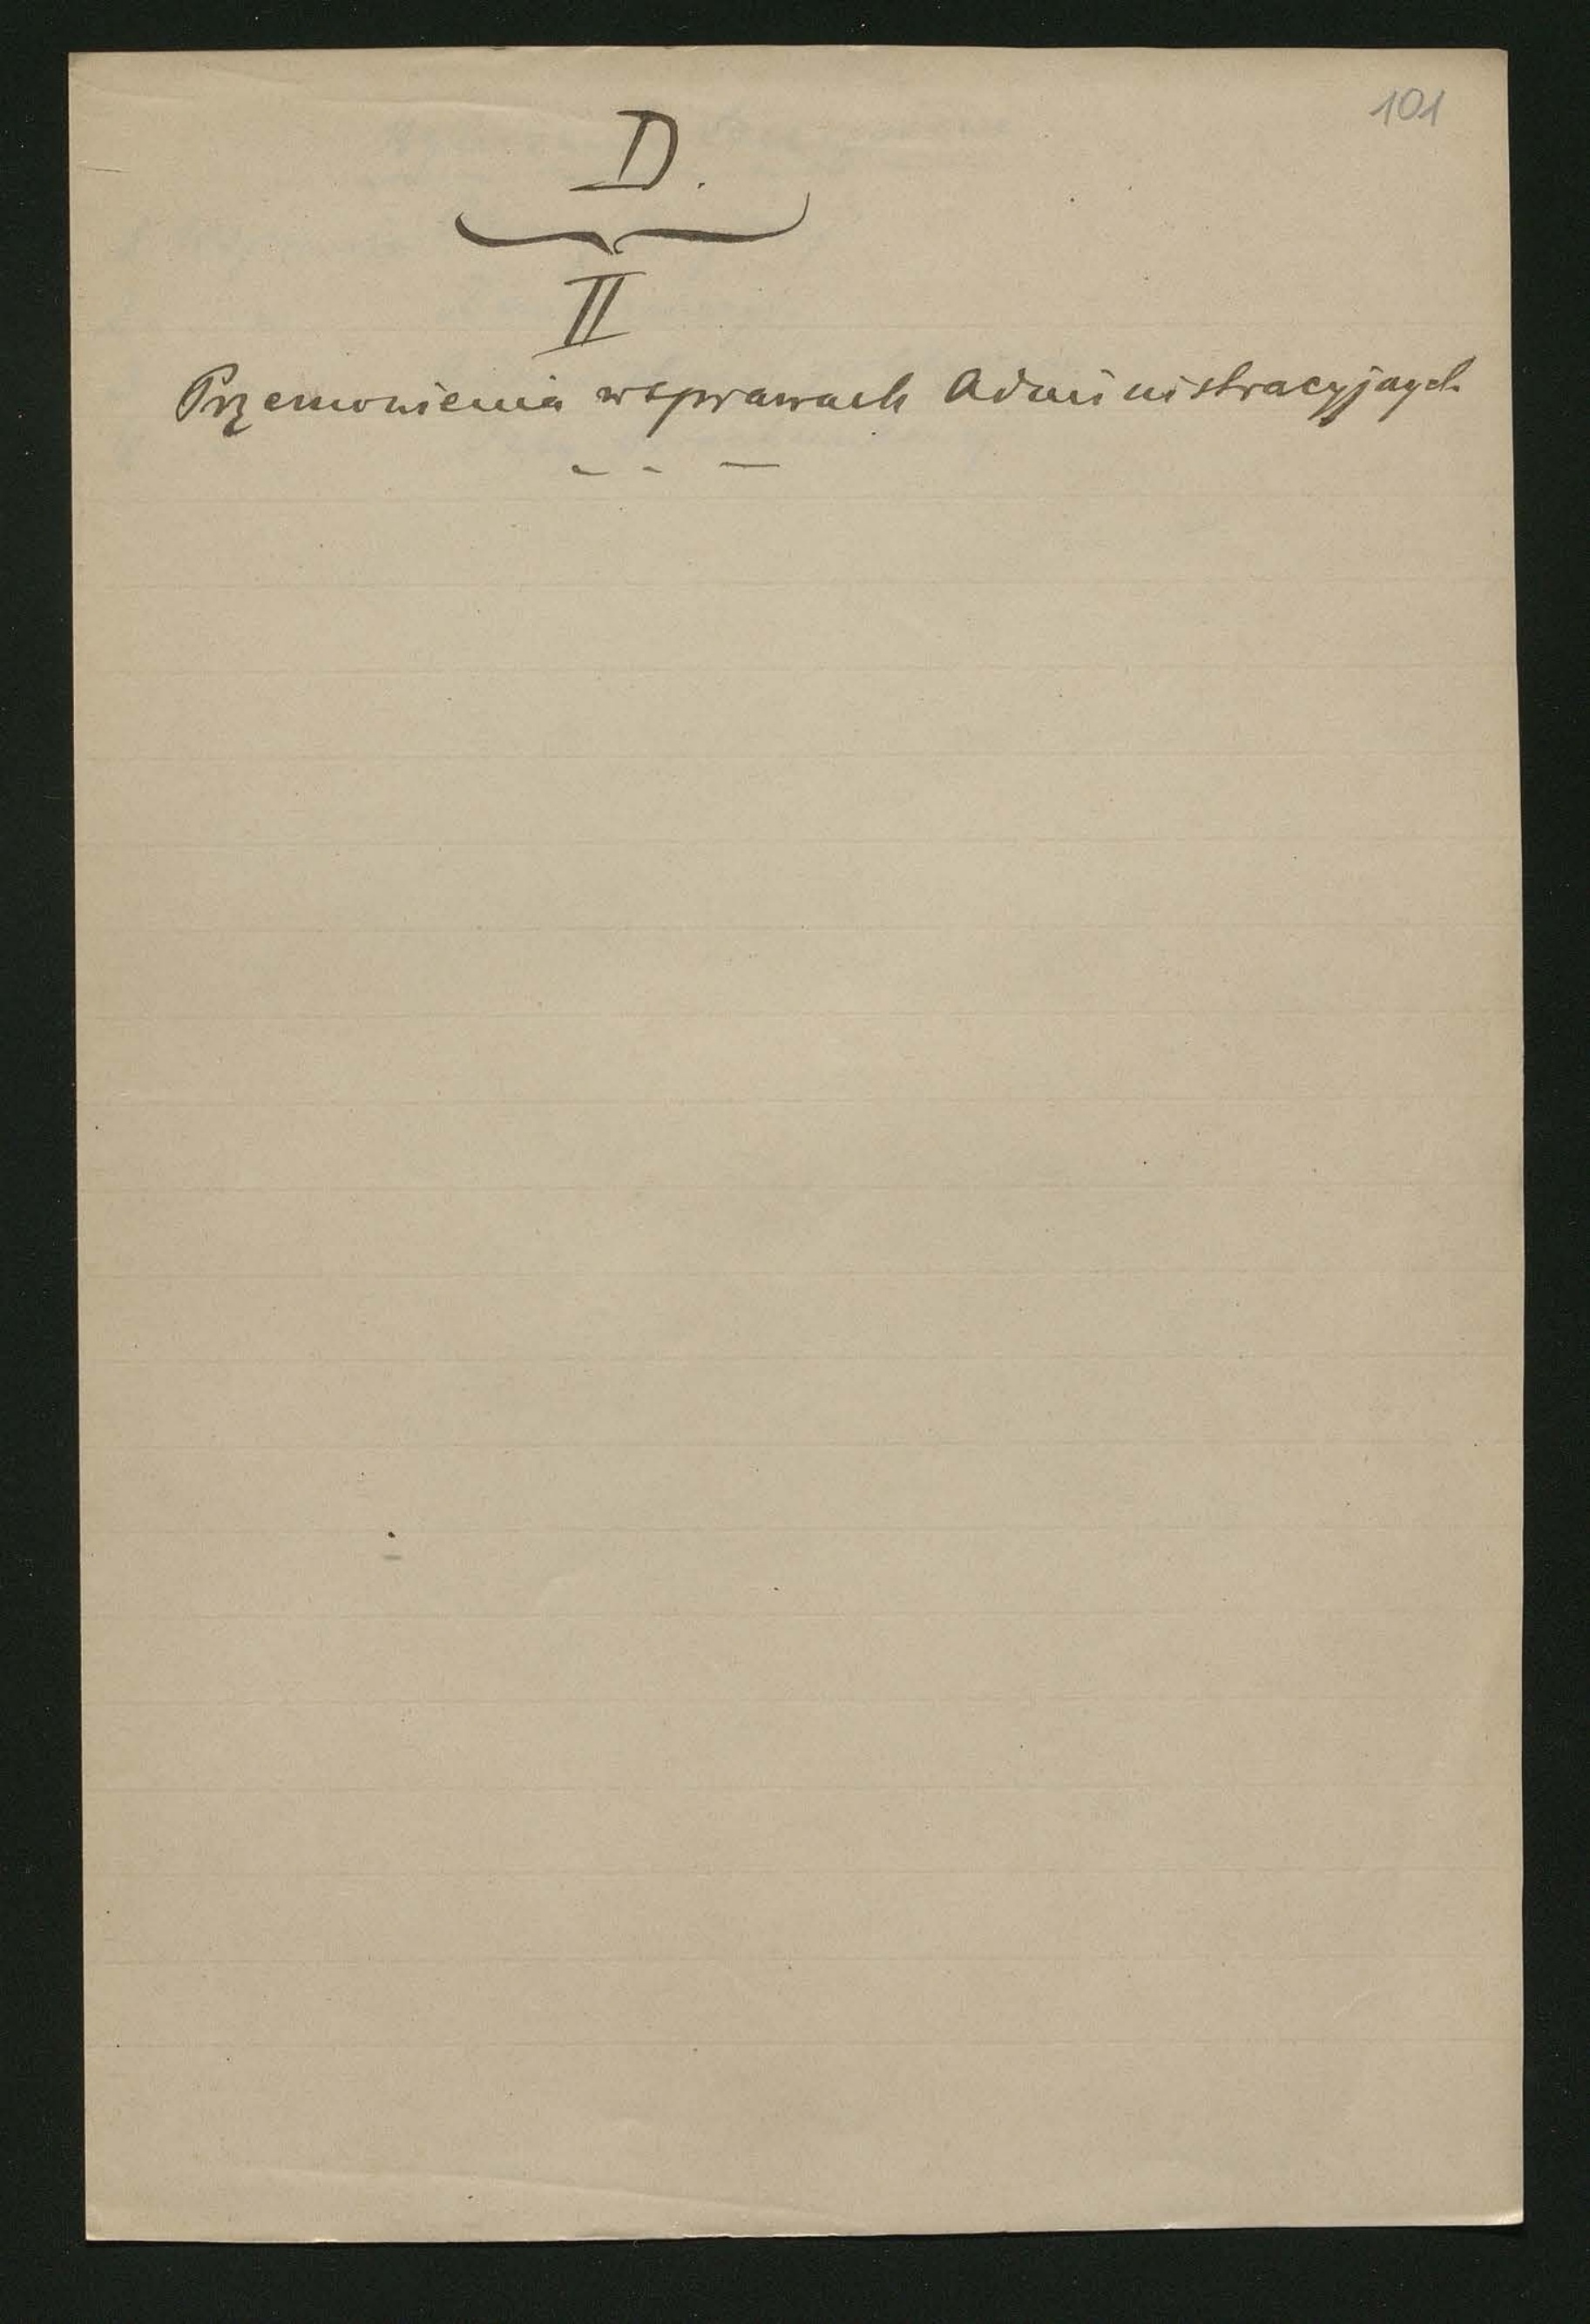 101
D.
II
Przemowienia w sprawach Administracyjnych